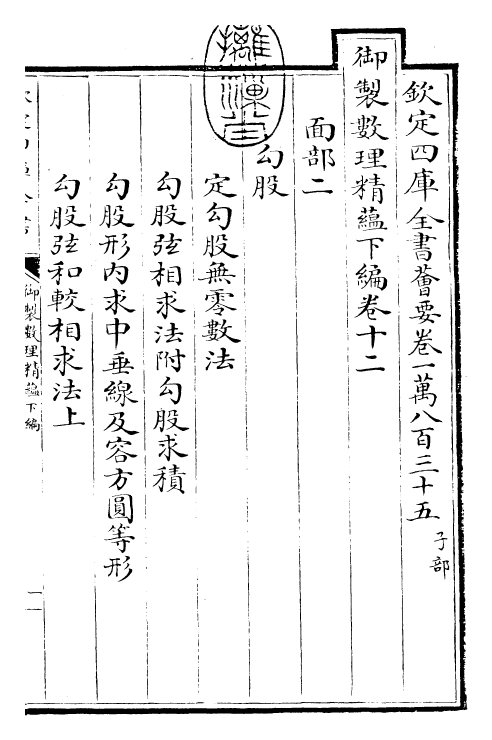 欽定四庫全書薈要卷一萬八百三十五
子部
御製數理精藴下編卷十二
面部二
勾股
定勾股無零數法
勾股弦相求法附勾股求積
勾股形内求中垂線及容方圓等形
勾股弦和較相求法上
御製數理精藴下編
一